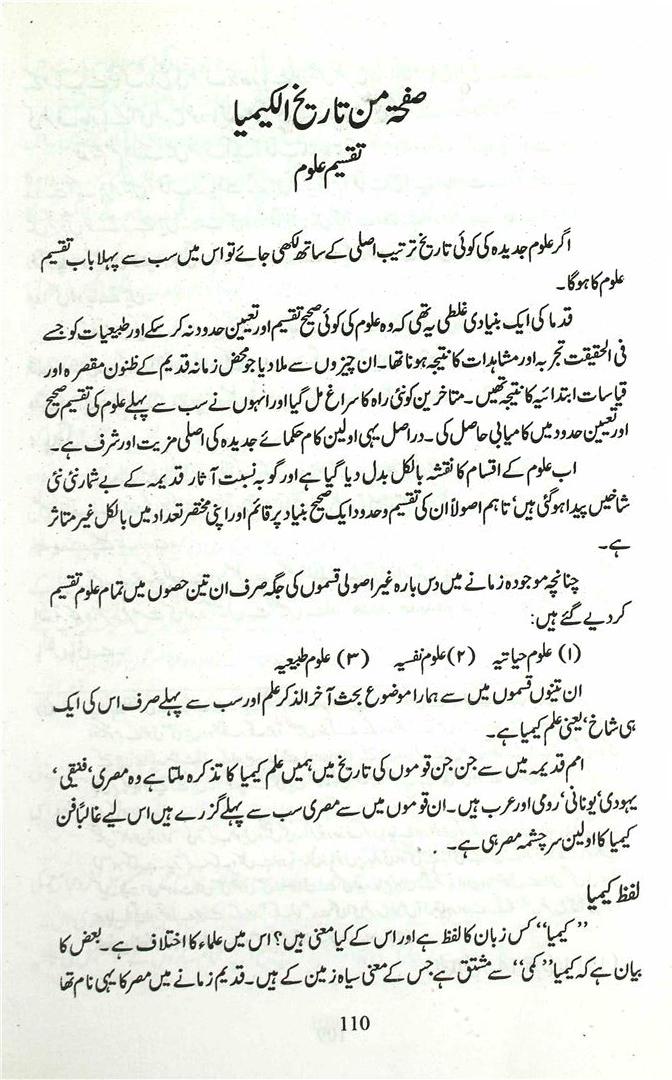 صفحۃ من تاریخ الکیمیا
تقسیم علوم
اگر علوم جدیدہ کی کوئی تاریخ ترتیب اصلی کے ساتھ لکھی جائے تو اس میں سب سے پہلا باب تقسیم
علوم کا ہوگا۔
قدما کی ایک بنیادی غلطی یہ تھی کہ وہ علوم کی کوئی صحیح تقسیم اور تعیین حدود نہ کر سکے اور طبیعیات کو جسے
فی الحقیقت تجربہ اور مشاہدات کا نتیجہ ہونا تھا۔ ان چیزوں سے ملا دیا جو محض زمانہ قدیم کے ظنون مقصرہ اور
قیاسات ابتدائیہ کا نتیجہ تھیں۔ متاخرین کو نئی راہ کا سراغ مل گیا اور انہوں نے سب سے پہلے علوم کی تقسیم صحیح
اور تعیین حدود میں کامیابی حاصل کی۔ دراصل یہی اولین کام حکمائے جدیدہ کی اصلی مزیت اور شرف ہے۔
اب علوم کے اقسام کا نقشہ بالکل بدل دیا گیا ہے اور گو بہ نسبت آثار قدیمہ کے بے شمار نئی نئی
شاخیں پیدا ہوگئی ہیں، تاہم اصولاً ان کی تقسیم و حدود ایک صحیح بنیاد پر قائم اور اپنی مختصر تعداد میں بالکل غیر متاثر
ہے۔
چنانچہ موجودہ زمانے میں دس بارہ غیر اصولی قسموں کی جگہ صرف ان تین حصوں میں تمام علوم تقسیم
کر دیے گئے ہیں:
(۱) علوم حیاتیہ (۲) علوم نفسیہ (۳) علوم طبیعیہ
ان تینوں قسموں میں سے ہمارا موضوع بحث آخر الذکر علم اور سب سے پہلے صرف اس کی ایک
ہی شاخ، یعنی علم کیمیا ہے۔
امم قدیمہ میں سے جن جن قوموں کی تاریخ میں ہمیں علم کیمیا کا تذکرہ ملتا ہے وہ مصری، فنیقی،
یہودی، یونانی، رومی اور عرب ہیں۔ ان قوموں میں سے مصری سب سے پہلے گزرے ہیں اس لیے غالباً فن
کیمیا کا اولین سرچشمہ مصر ہی ہے۔
لفظ کیمیا
”کیمیا“ کس زبان کا لفظ ہے اور اس کے کیا معنی ہیں؟ اس میں علماء کا اختلاف ہے۔ بعض کا
بیان ہے کہ کیمیا ”کمی“ سے مشتق ہے جس کے معنی سیاہ زمین کے ہیں۔ قدیم زمانے میں مصر کا یہی نام تھا
110